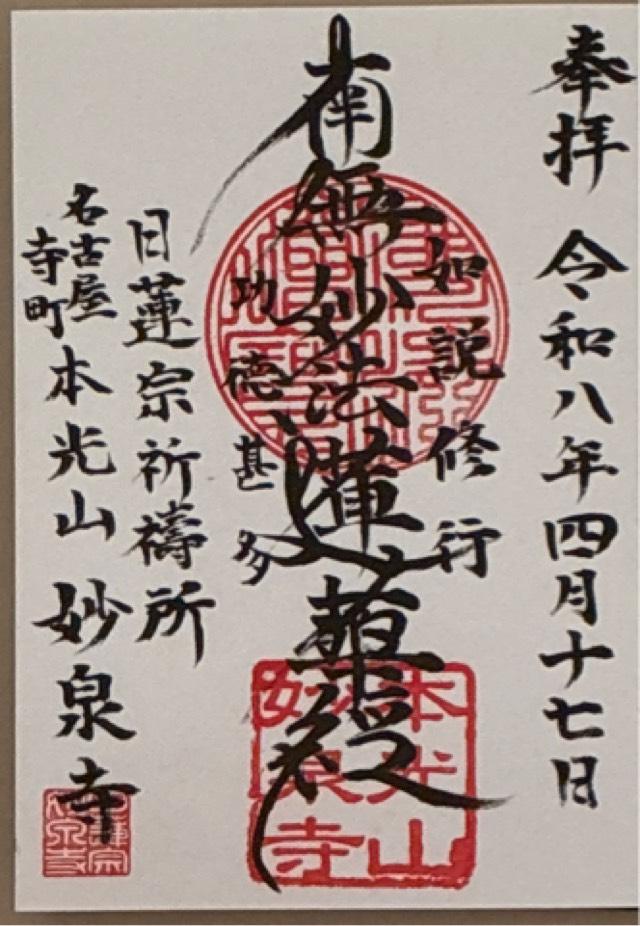 奉拝 令和八年四月十七日
如説修行
南無妙法蓮華経
功徳甚多
日蓮宗祈祷所
名古屋
寺町
本光山 妙泉寺
本光山
妙泉寺